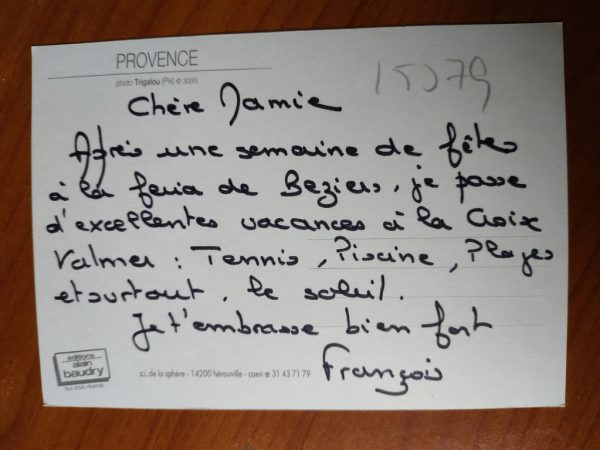 PROVENCE
photo Trigalou (Pix) ©
15079
Chère Mamie
Après une semaine de fêtes
à la feria de Beziers, je passe
d'excellentes vacances à la Croix
Valmer : Tennis, Piscine, Plages
et surtout, le soleil.
Je t'embrasse bien fort
François
éditions
alain
baudry
z.i. de la sphère - 14200 hérouville - caen ☎ 31 43 71 79